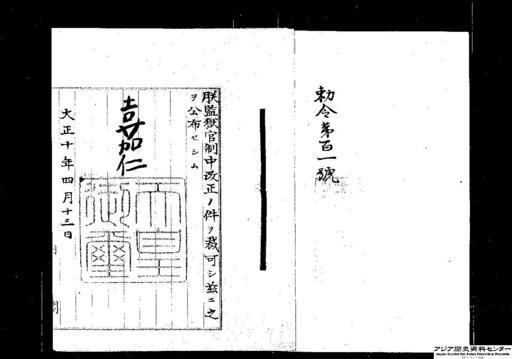 勅令第百一號
朕監獄官制中改正ノ件ヲ裁可シ茲ニ之
ヲ公布セシム
嘉仁
天皇
御璽
大正十年四月十三日
アジア歴史資料センター
Japan Center for Asian Historical Records